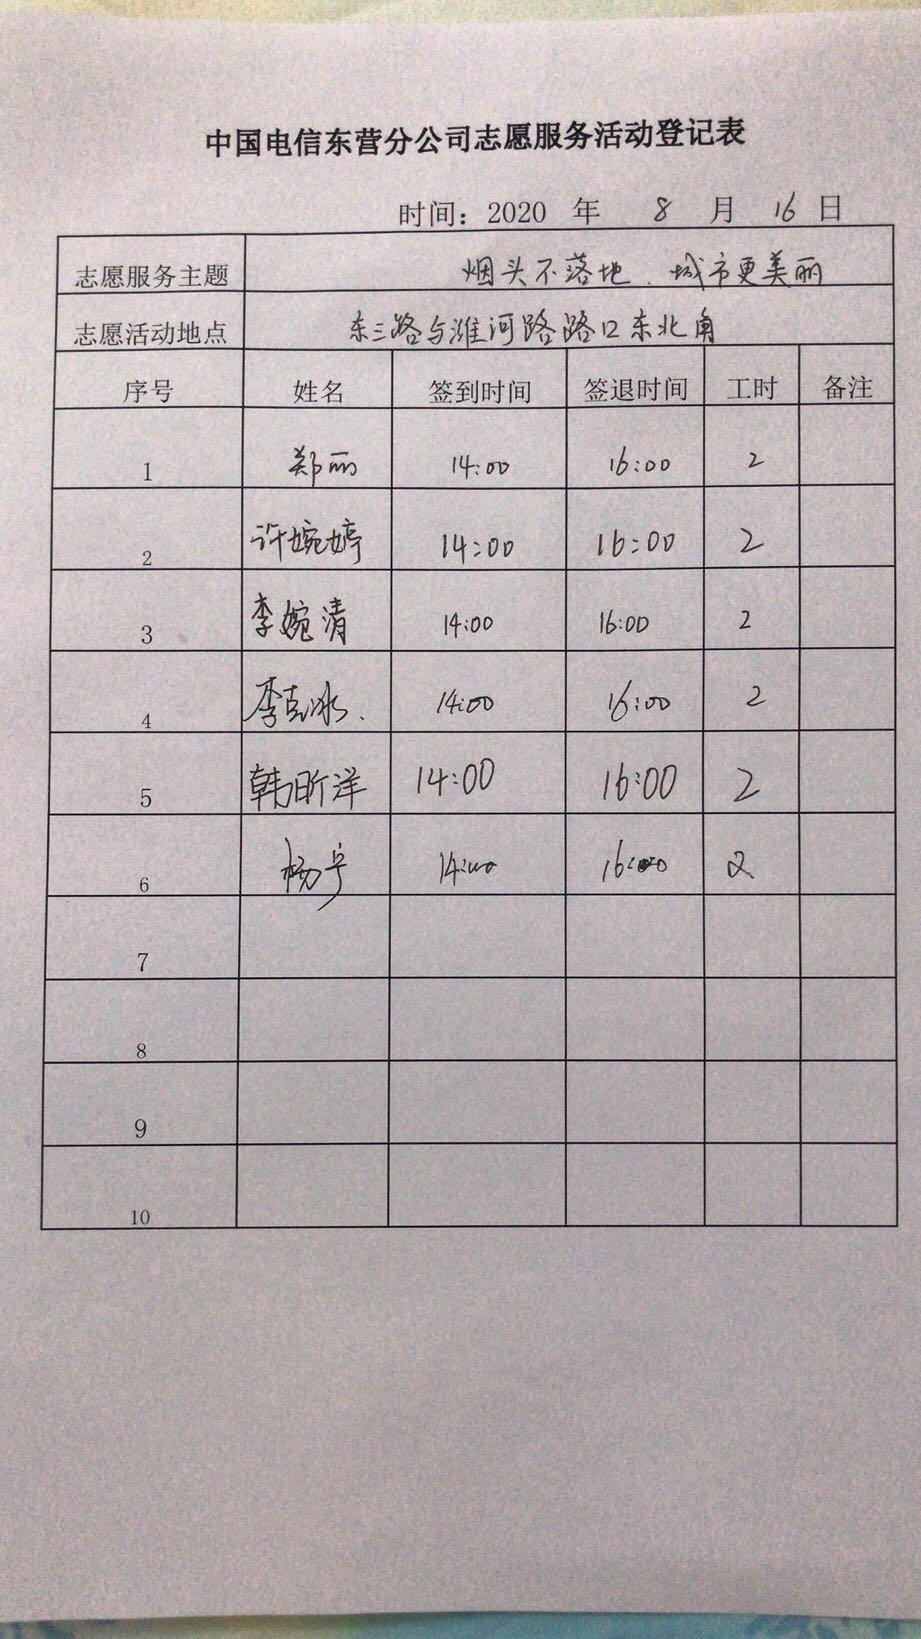 中国电信东营分公司志愿服务活动登记表
时间：2020 年 8 月 16 日
志愿服务主题 烟头不落地、城市更美丽
志愿活动地点 东三路与潍河路路口东北角
序号 姓名 签到时间 签退时间 工时 备注
1 郑丽 14:00 16:00 2
2 许婉婷 14:00 16:00 2
3 李婉清 14:00 16:00 2
4 李克冰 14:00 16:00 2
5 韩昕洋 14:00 16:00 2
6 杨宁 14:00 16:00 2
7
8
9
10